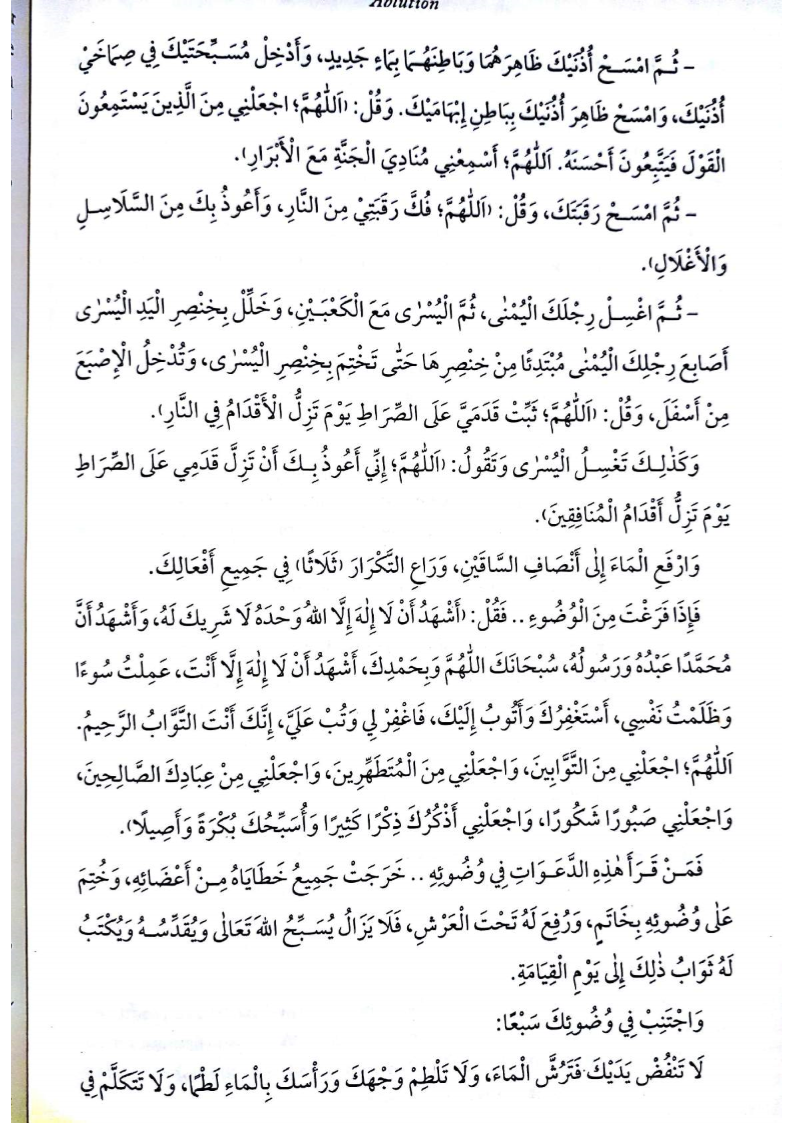 Ablution
– ثُمَّ امْسَحْ أُذُنَيْكَ ظَاهِرَهُمَا وَبَاطِنَهُمَا بِمَاءٍ جَدِيدٍ، وَأَدْخِلْ مُسَبِّحَتَيْكَ فِي صِمَاخَيْ
أُذُنَيْكَ، وَامْسَحْ ظَاهِرَ أُذُنَيْكَ بِبَاطِنِ إِبْهَامَيْكَ. وَقُلْ: (اَللّٰهُمَّ؛ اجْعَلْنِي مِنَ الَّذِينَ يَسْتَمِعُونَ
الْقَوْلَ فَيَتَّبِعُونَ أَحْسَنَهُ. اَللّٰهُمَّ؛ أَسْمِعْنِي مُنَادِيَ الْجَنَّةِ مَعَ الْأَبْرَارِ).
– ثُمَّ امْسَحْ رَقَبَتَكَ، وَقُلْ: (اَللّٰهُمَّ؛ فُكَّ رَقَبَتِيْ مِنَ النَّارِ، وَأَعُوذُ بِكَ مِنَ السَّلَاسِلِ
وَالْأَغْلَالِ).
– ثُمَّ اغْسِلْ رِجْلَكَ الْيُمْنٰى، ثُمَّ الْيُسْرٰى مَعَ الْكَعْبَيْنِ، وَخَلِّلْ بِخِنْصِرِ الْيَدِ الْيُسْرٰى
أَصَابِعَ رِجْلِكَ الْيُمْنٰى مُبْتَدِئًا مِنْ خِنْصِرِهَا حَتّٰى تَخْتِمَ بِخِنْصِرِ الْيُسْرٰى، وَتُدْخِلُ الْإِصْبَعَ
مِنْ أَسْفَلَ، وَقُلْ: (اَللّٰهُمَّ؛ ثَبِّتْ قَدَمَيَّ عَلَى الصِّرَاطِ يَوْمَ تَزِلُّ الْأَقْدَامُ فِي النَّارِ).
وَكَذٰلِكَ تَغْسِلُ الْيُسْرٰى وَتَقُولُ: (اَللّٰهُمَّ؛ إِنِّي أَعُوذُ بِكَ أَنْ تَزِلَّ قَدَمِي عَلَى الصِّرَاطِ
يَوْمَ تَزِلُّ أَقْدَامُ الْمُنَافِقِينَ).
وَارْفَعِ الْمَاءَ إِلٰى أَنْصَافِ السَّاقَيْنِ، وَرَاعِ التَّكْرَارَ (ثَلَاثًا) فِي جَمِيعِ أَفْعَالِكَ.
فَإِذَا فَرَغْتَ مِنَ الْوُضُوءِ .. فَقُلْ: (أَشْهَدُ أَنْ لَا إِلٰهَ إِلَّا اللهُ وَحْدَهُ لَا شَرِيكَ لَهُ، وَأَشْهَدُ أَنَّ
مُحَمَّدًا عَبْدُهُ وَرَسُولُهُ، سُبْحَانَكَ اللّٰهُمَّ وَبِحَمْدِكَ، أَشْهَدُ أَنْ لَا إِلٰهَ إِلَّا أَنْتَ، عَمِلْتُ سُوءًا
وَظَلَمْتُ نَفْسِي، أَسْتَغْفِرُكَ وَأَتُوبُ إِلَيْكَ، فَاغْفِرْ لِي وَتُبْ عَلَيَّ، إِنَّكَ أَنْتَ التَّوَّابُ الرَّحِيمُ.
اَللّٰهُمَّ؛ اجْعَلْنِي مِنَ التَّوَّابِينَ، وَاجْعَلْنِي مِنَ الْمُتَطَهِّرِينَ، وَاجْعَلْنِي مِنْ عِبَادِكَ الصَّالِحِينَ،
وَاجْعَلْنِي صَبُورًا شَكُورًا، وَاجْعَلْنِي أَذْكُرُكَ ذِكْرًا كَثِيرًا وَأُسَبِّحُكَ بُكْرَةً وَأَصِيلًا).
فَمَنْ قَرَأَ هٰذِهِ الدَّعَوَاتِ فِي وُضُوئِهِ .. خَرَجَتْ جَمِيعُ خَطَايَاهُ مِنْ أَعْضَائِهِ، وَخُتِمَ
عَلٰى وُضُوئِهِ بِخَاتَمٍ، وَرُفِعَ لَهُ تَحْتَ الْعَرْشِ، فَلَا يَزَالُ يُسَبِّحُ اللهَ تَعَالٰى وَيُقَدِّسُهُ وَيُكْتَبُ
لَهُ ثَوَابُ ذٰلِكَ إِلٰى يَوْمِ الْقِيَامَةِ.
وَاجْتَنِبْ فِي وُضُوئِكَ سَبْعًا:
لَا تَنْفُضْ يَدَيْكَ فَتَرُشَّ الْمَاءَ، وَلَا تَلْطِمْ وَجْهَكَ وَرَأْسَكَ بِالْمَاءِ لَطْمًا، وَلَا تَتَكَلَّمْ فِي